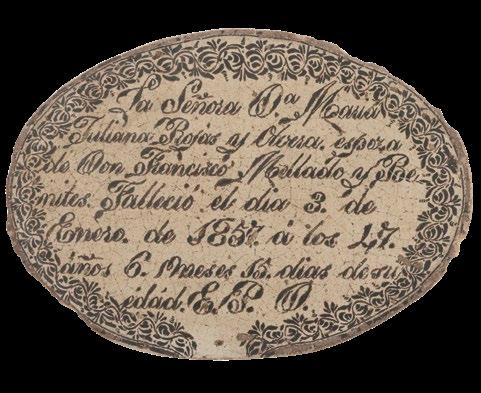 La Señora D.ª Maria
Juliana Rojas y Utrera, espoza
de Don Francisco Mellado y Be-
nites. Falleció el dia 3. de
Enero. de 1857. á los 47.
años 6. Meses 15. dias de su
edád. E. P. D.